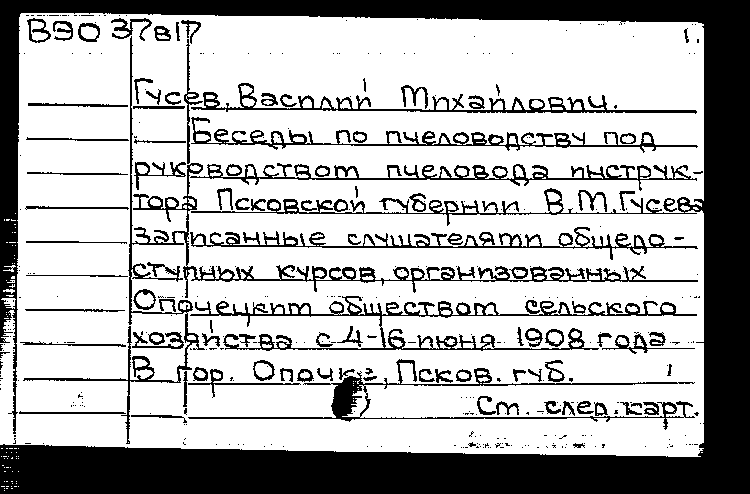 В90 37в17 1.
Гусев, Василий Михайлович.
Беседы по пчеловодству под
руководством пчеловода инструк-
тора Псковской губернии В.М.Гусева
записанные слушателями общедо-
ступных курсов, организованных
Опочецким обществом сельского
хозяйства с 4-16 июня 1908 года
В гор. Опочке, Псков. губ. 1
См. след. карт.